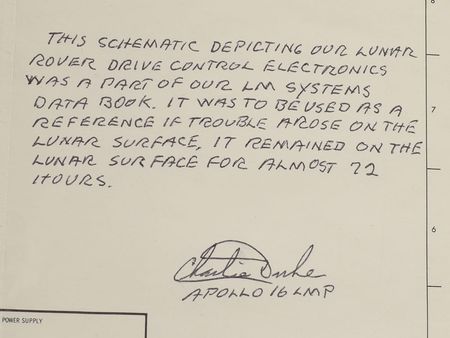 8
THIS SCHEMATIC DEPICTING OUR LUNAR
ROVER DRIVE CONTROL ELECTRONICS
WAS A PART OF OUR LM SYSTEMS
DATA BOOK. IT WAS TO BE USED AS A
7
REFERENCE IF TROUBLE AROSE ON THE
LUNAR SURFACE, IT REMAINED ON THE
LUNAR SURFACE FOR ALMOST 72
HOURS.
6
Charlie Duke
APOLLO 16 LMP
POWER SUPPLY